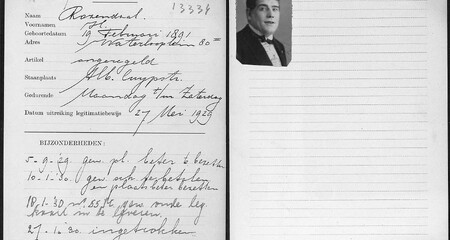 13338
Naam Rozendaal.
Voornamen H.
Geboortedatum 19 Februari 1891
Adres Waterlooplein 80 III
Artikel ongeregeld
Staanplaats Alb. Cuypstr.
Gedurende Maandag t/m Zaterdag
Datum uitreiking legitimatiebewijs 27 Mei 1929
BIJZONDERHEDEN:
5-9-'29. gew. pl. beter te bezetten
10-1-'30. gew. ach. te betalen
en plaats beter bezetten
18-1-30 gew. oude leg.
kaart in te leveren.
27-1-30 ingetrokken